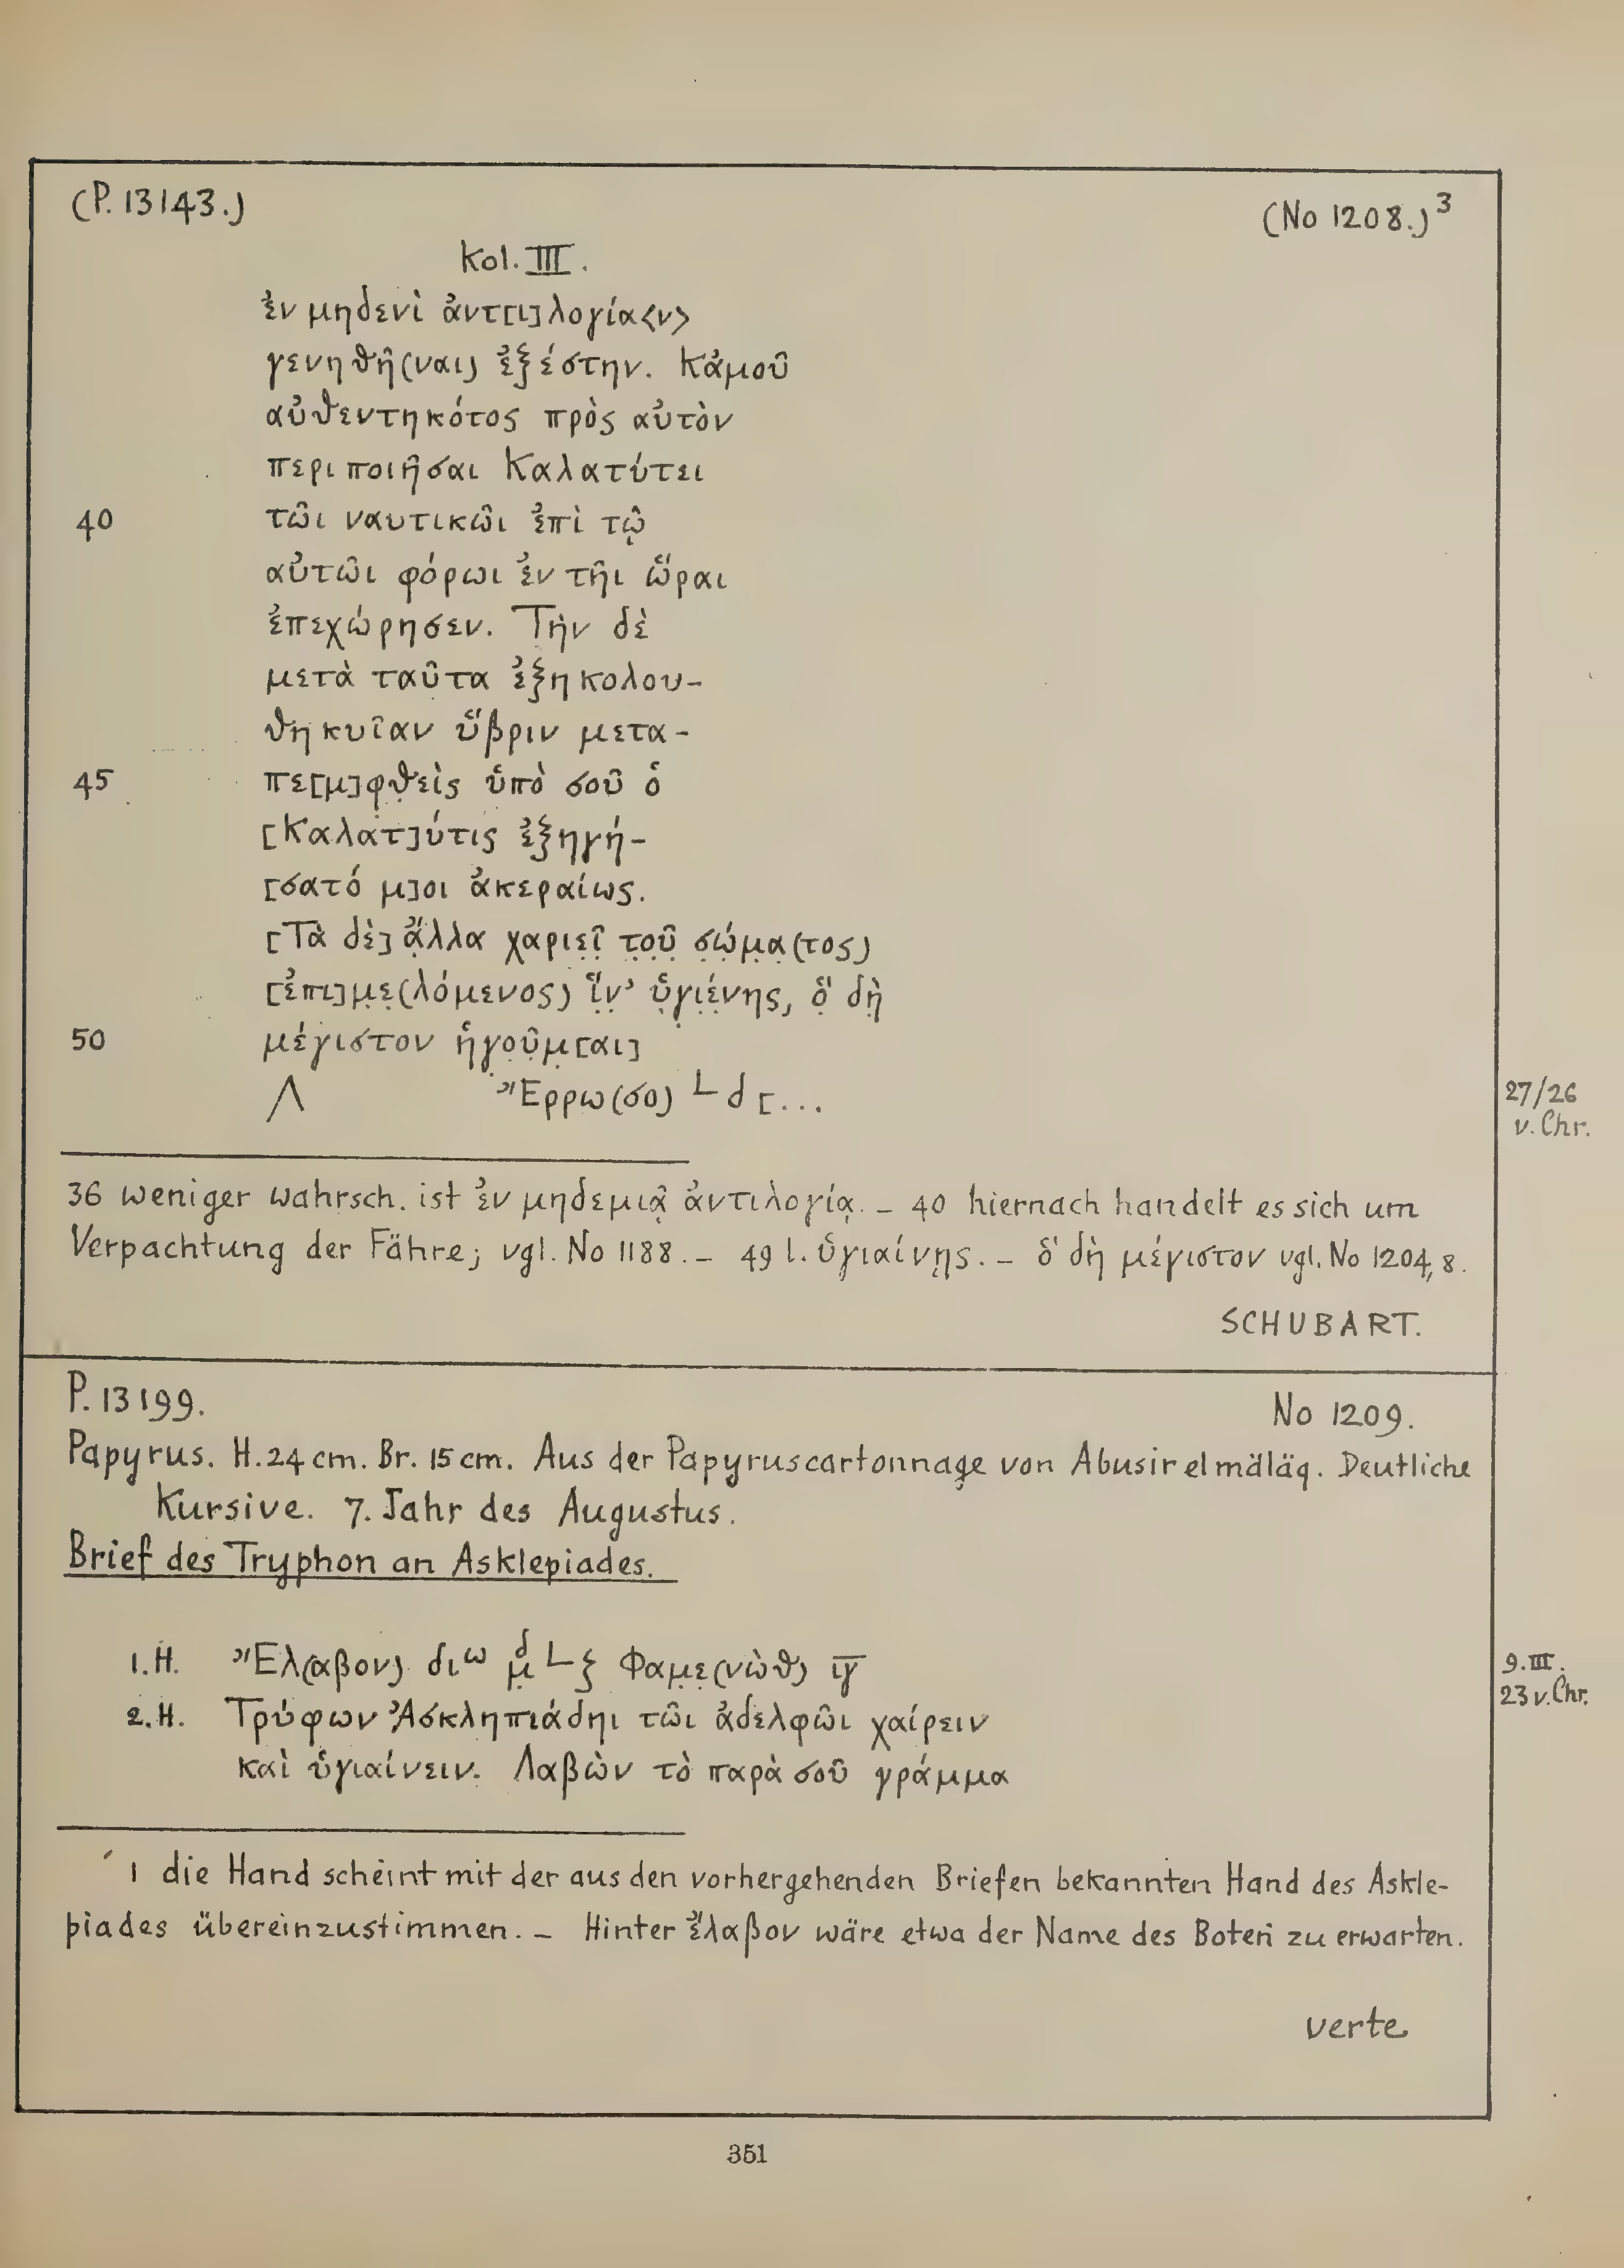 (P. 13143.) (No 1208.)³
Kol. III.
ἐν μηδενὶ ἀντ[ι]λογία<ν>
γενηθῆ(ναι) ἐξέστην. Κἀμοῦ
αὐθεντηκότος πρὸς αὐτὸν
περιποιῆσαι Καλατύτει
40 τῶι ναυτικῶι ἐπὶ τῷ
αὐτῶι φόρωι ἐν τῆι ὥραι
ἐπεχώρησεν. Τὴν δὲ
μετὰ ταῦτα ἐξηκολου-
θηκυῖαν ὕβριν μετα-
45 πε[μ]φθεὶς ὑπὸ σοῦ ὁ
[Καλατ]ύτις ἐξηγή-
[σατό μ]οι ἀκεραίως.
[Τὰ δὲ] ἄ̣λλα χαριε̣ῖ̣ τ̣ο̣ῦ̣ σ̣ώ̣μ̣α̣(τος)
[ἐπι]μ̣ε̣(λόμενος) ἵ̣ν̣’ ὑ̣γ̣ι̣έ̣νης, ὃ̣ δὴ̣
50 μέγιστον ἡγο̣ῦ̣μ̣[αι]
Λ Ἔρρω(σο) L δ [...
27/26
v. Chr.
36 weniger wahrsch. ist ἐν μηδεμιᾷ ἀντιλογίᾳ. – 40 hiernach handelt es sich um
Verpachtung der Fähre; vgl. No 1188. – 49 l. ὑγιαίνῃς. – ὃ δὴ μέγιστον vgl. No 1204, 8.
SCHUBART.
P. 13199. No 1209.
Papyrus. H. 24 cm. Br. 15 cm. Aus der Papyruscartonnage von Abusir el mäläq. Deutliche
Kursive. 7. Jahr des Augustus.
Brief des Tryphon an Asklepiades.
1. H. Ἔλ(αβον) δι^ω μ̣^δ L ζ Φαμ̣ε̣(νὼθ) ι̅γ̅
9. III.
23 v. Chr.
2. H. Τρύφων Ἀσκληπιάδηι τῶι ἀδελφῶι χαίρειν
καὶ ὑγιαίνειν. Λαβὼν τὸ παρὰ σοῦ γράμμα
1 die Hand scheint mit der aus den vorhergehenden Briefen bekannten Hand des Askle-
piades übereinzustimmen. – Hinter ἔλαβον wäre etwa der Name des Boten zu erwarten.
verte
351